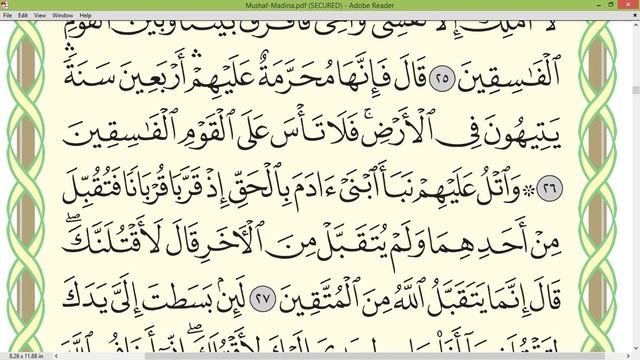 Mushaf-Madina.pdf (SECURED) - Adobe Reader
File Edit View Window Help
لَآ أَمْلِكُ إِلَّا نَفْسِى وَأَخِى فَٱفْرُقْ بَيْنَنَا وَبَيْنَ ٱلْقَوْمِ
ٱلْفَـٰسِقِينَ ٢٥ قَالَ فَإِنَّهَا مُحَرَّمَةٌ عَلَيْهِمْ ۛ أَرْبَعِينَ سَنَةً ۛ
يَتِيهُونَ فِى ٱلْأَرْضِ ۚ فَلَا تَأْسَ عَلَى ٱلْقَوْمِ ٱلْفَـٰسِقِينَ
٢٦ ۞ وَٱتْلُ عَلَيْهِمْ نَبَأَ ٱبْنَىْ ءَادَمَ بِٱلْحَقِّ إِذْ قَرَّبَا قُرْبَانًا فَتُقُبِّلَ
مِنْ أَحَدِهِمَا وَلَمْ يُتَقَبَّلْ مِنَ ٱلْـَٔاخَرِ قَالَ لَأَقْتُلَنَّكَ ۖ
قَالَ إِنَّمَا يَتَقَبَّلُ ٱللَّهُ مِنَ ٱلْمُتَّقِينَ ٢٧ لَئِنۢ بَسَطتَ إِلَىَّ يَدَكَ
8.26 x 11.68 in